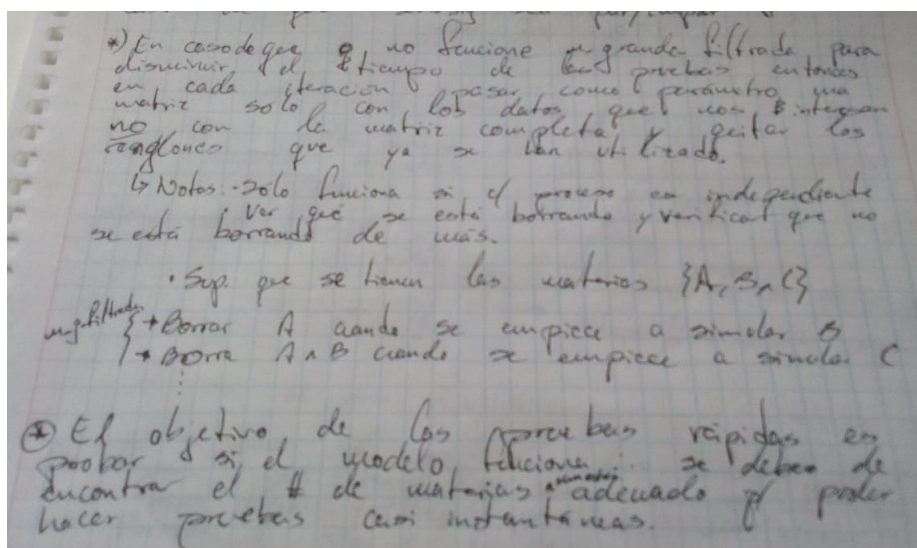 *) En caso de que no funcione m_grande_filtrada para
disminuir el tiempo de las pruebas entonces
en cada iteración pasar como parámetro una
matriz solo con los datos que nos interesan
no con la matriz completa y quitar los
renglones que ya se han utilizado.
↳ Notas: -Sólo funciona si el proceso es independiente
· Ver que se está borrando y verificar que no
se está borrando de más.
· Sup. que se tienen las materias {A, B, C}
m_g_filtrada
→ Borrar A cuando se empiece a simular B
→ Borra A ∧ B cuando se empiece a simular C
⊛ El objetivo de las pruebas rápidas es
probar si el modelo funciona ∴ se debe de
encontrar el # de materias adecuado p/ poder
hacer pruebas casi instantáneas.